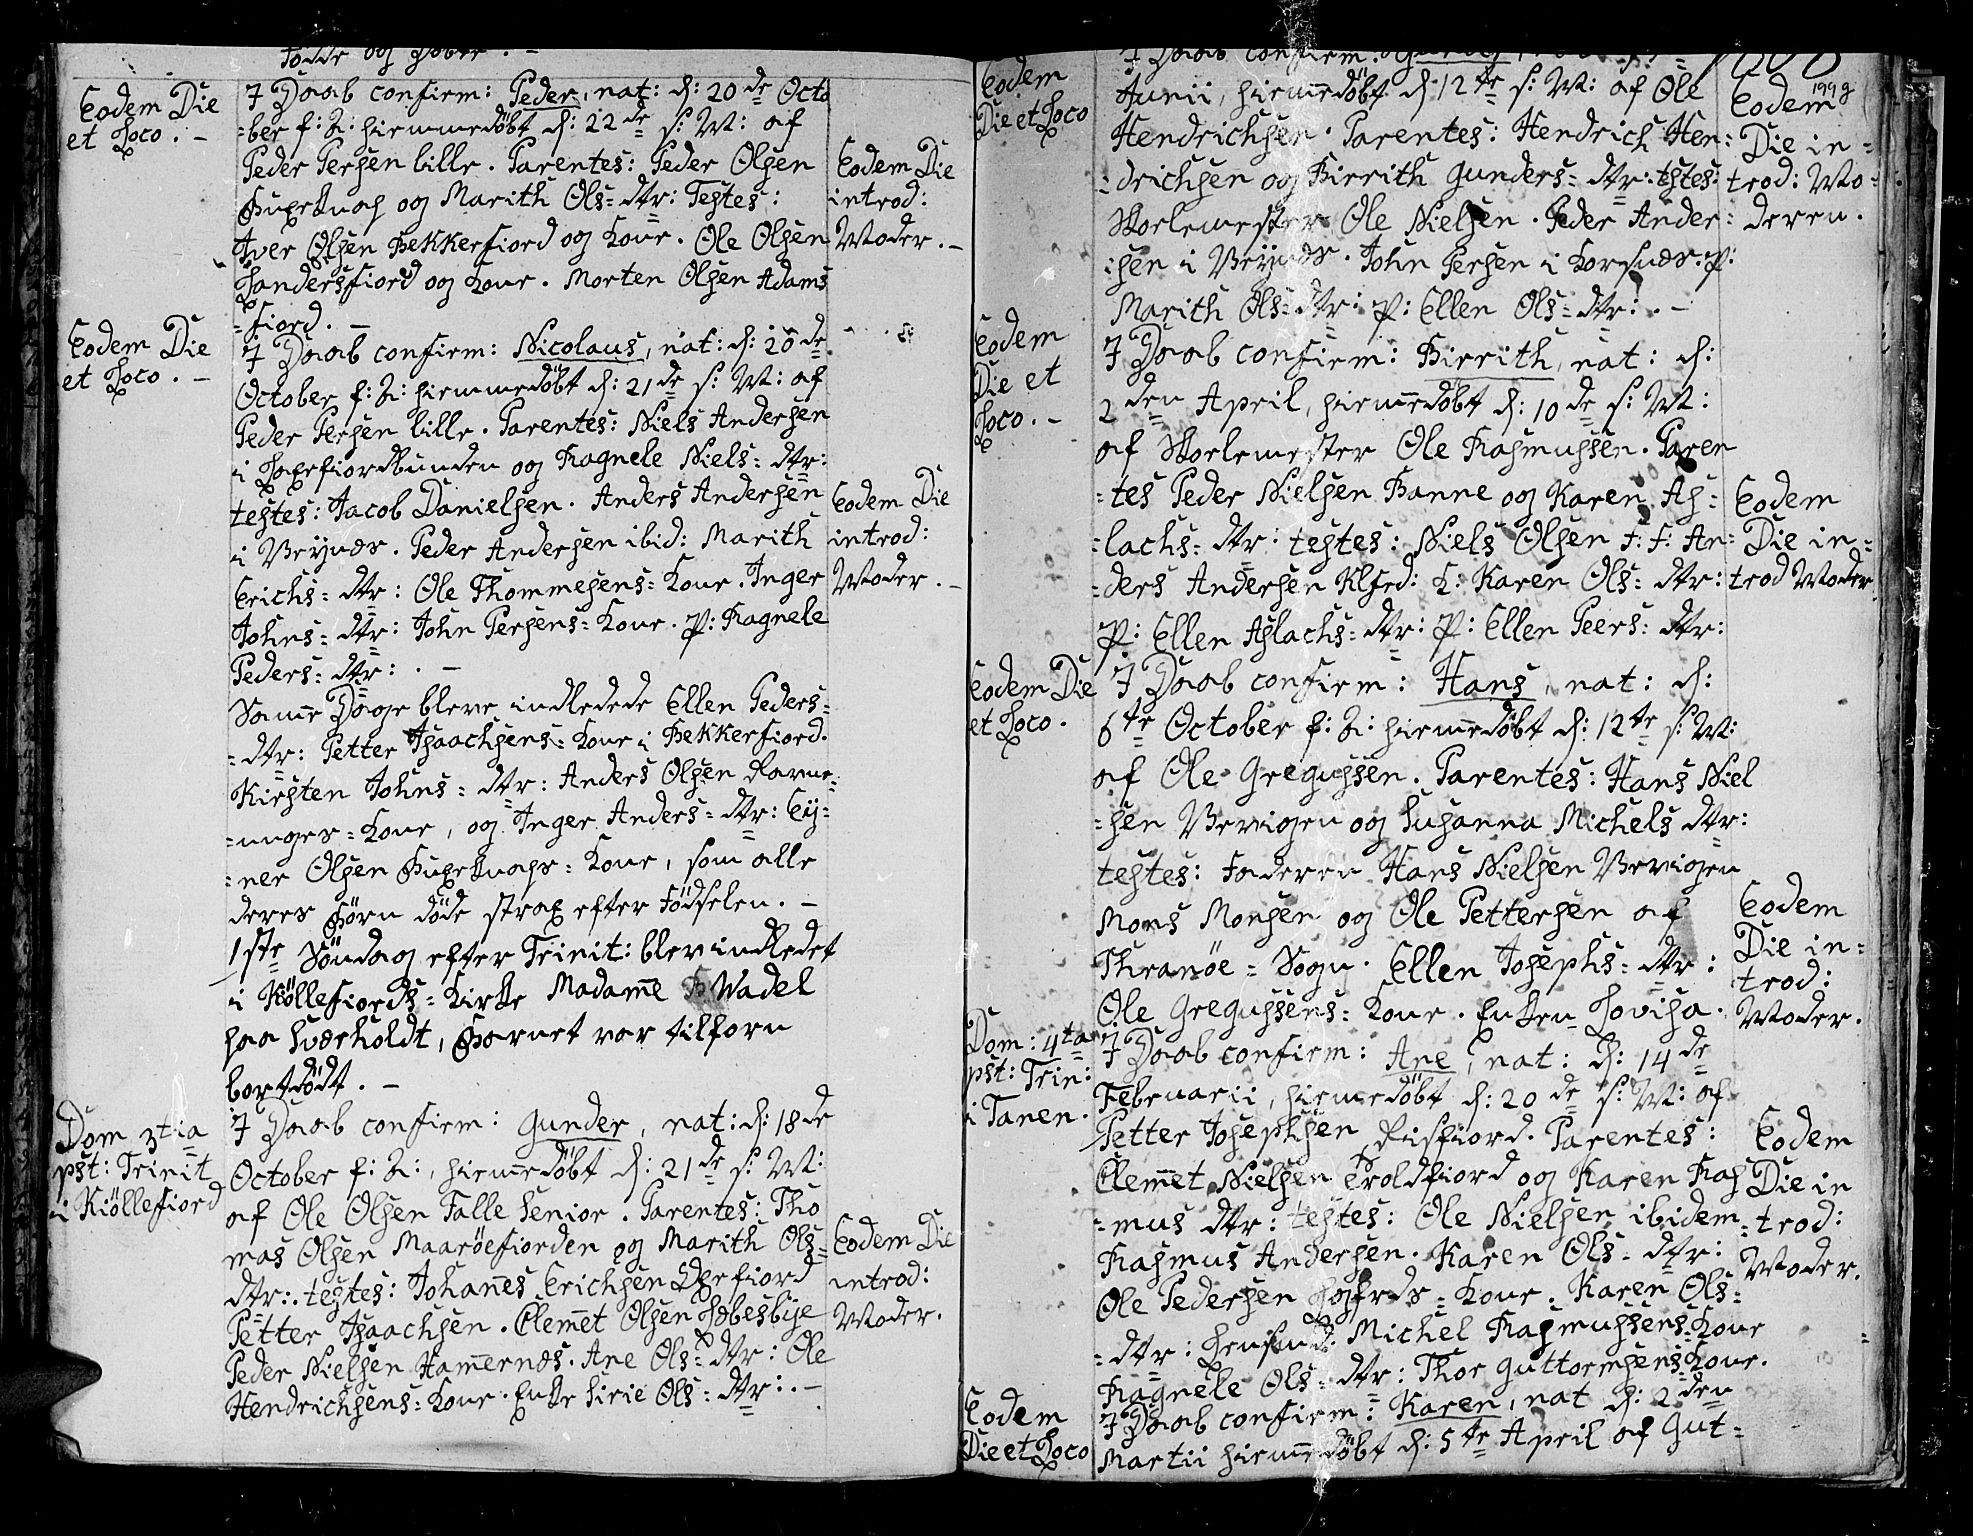 Fødde og Døbte. -
Eodem Die
et Loco. -
I Daab confirm: Peder, nat: d: 20de Octo
=ber f: A: hiemmedøbt d: 22de s: M: af
Peder Persen lille. Parentes: Peder Olsen
og Marith Ols= dtr: Testes:
Iver Olsen Bekkerfiord og Kone. Ole Olsen
Landersfiord og Kone. Morten Olsen Adams
=fiord. -
Eodem Die
introd:
Moder. -
Eodem Die
et Loco. -
I Daab confirm: Nicolaus, nat: d: 20de
October f: A: hiemmedøbt d: 21de s: M: af
Peder Persen lille. Parentes: Niels Andersen
i Laxefiordbunden og Ragnele Niels= dtr:
testes: Jacob Danielsen. Anders Andersen
i Veynæs. Peder Andersen ibid: Marith
Erichs= dtr: Ole Thommesens= Kone. Inger
Johns= dtr: John Persens= Kone. P: Ragnele
Peders= dtr: . -
Eodem Die
introd:
Moder. -
Samme Dage bleve indledede Ellen Peders=
=dtr: Petter Isaachsens= Kone i Bekkerfiord.
Kirsten Johns= dtr: Anders Olsen
=unges= Kone, og Inger Anders= dtr: Ey=
=ner Olsen Kone, som alle
deres Børn døde strax efter Fødselen. -
1ste Søndag efter Trinit: blev indledet
i Kiøllefiords= Kirke Madame Wadel
paa Sværholdt, Barnet var tilforn
bortdødt. -
Dom 3tia
pst: Trinit
i Kiøllefiord
I Daab confirm: Gunder, nat: d: 18de
October f: A:, hiemmedøbt d: 21de s: M:
af Ole Olsen Falle Senior. Parentes: Tho
mas Olsen Maarøefiorden og Marith Ols=
dtr: testes: Johannes Erichsen Oxefiord
Petter Isaachsen. Clemmet Olsen Lebesbye
Peder Nielsen Hamernæs. Ane Ols= dtr: Ole
Hendrichsens= Kone. Enke Sirie Ols= dtr: . -
Eodem Die
introd:
Moder.
1808
199g
Eodem
Die et Loco
I Daab confirm:
Junii, hiemmedøbt d: 12te s: M: af Ole
Hendrichsen. Parentes: Hendrich Hen=
=drichsen og Birrith Gunders= dtr: testes:
Skolemester Ole Nielsen. Peder Ander=
=sen i Veynæs. John Persen i Korsnæs. P:
Marith Ols= dtr: P: Ellen Ols= dtr: . -
Eodem
Die in=
trod: Mo=
deren.
Eodem
Die et
Loco. -
I Daab confirm: Birrith, nat: d:
2den April, hiemmedøbt d: 10de s: M:
af Skolemester Ole Rasmussen. Paren
=tes Peder Nielsen Banne og Karen As=
=lachs= dtr: testes: Niels Olsen F: F: An=
=ders Andersen Klfrd: K: Karen Ols= dtr:
P: Ellen Aslachs= dtr: P: Ellen Peers= dtr:
Eodem
Die in=
trod Moder
Eodem Die
et Loco.
I Daab confirm: Hans, nat: d:
6te October f: A: hiemmedøbt d: 12te s: M:
af Ole Gregussen. Parentes: Hans Niel
=sen Verrigen og Susanna Michels dtr:
testes: Faderen Hans Nielsen Verrigen
Mons Monsen og Ole Pettersen af
Thranöe= Sogn. Ellen Josephs= dtr:
Ole Gregussens= Kone. Enken Lovisa.
Eodem
Die in=
trod:
Moder.
Dom: 4ta
pst: Trin:
i Tanen.
I Daab confirm: Ane, nat: d: 14de
Februarii, hiemmedøbt d: 20de s: M: af
Petter Josephsen Risfiord. Parentes:
Clemmet Nielsen Troldfiord og Karen Ras
=mus dtr: testes: Ole Nielsen ibidem
Rasmus Andersen. Karen Ols= dtr:
Ole Pedersen Kone. Karen Ols=
=dtr: Michel Rasmussens= Kone
Ragnele Ols= dtr: Thor Guttormsens Kone.
Eodem
Die in
=trod:
Moder.
Eodem
Die et Loco
I Daab confirm: Karen, nat d: 2den
Martii hiemmedøbt d: 5te April af Gut=